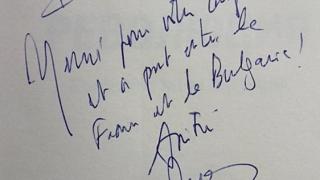 Merci pour votre
et ce pont entre la
France et la Bulgarie !
Amitiés